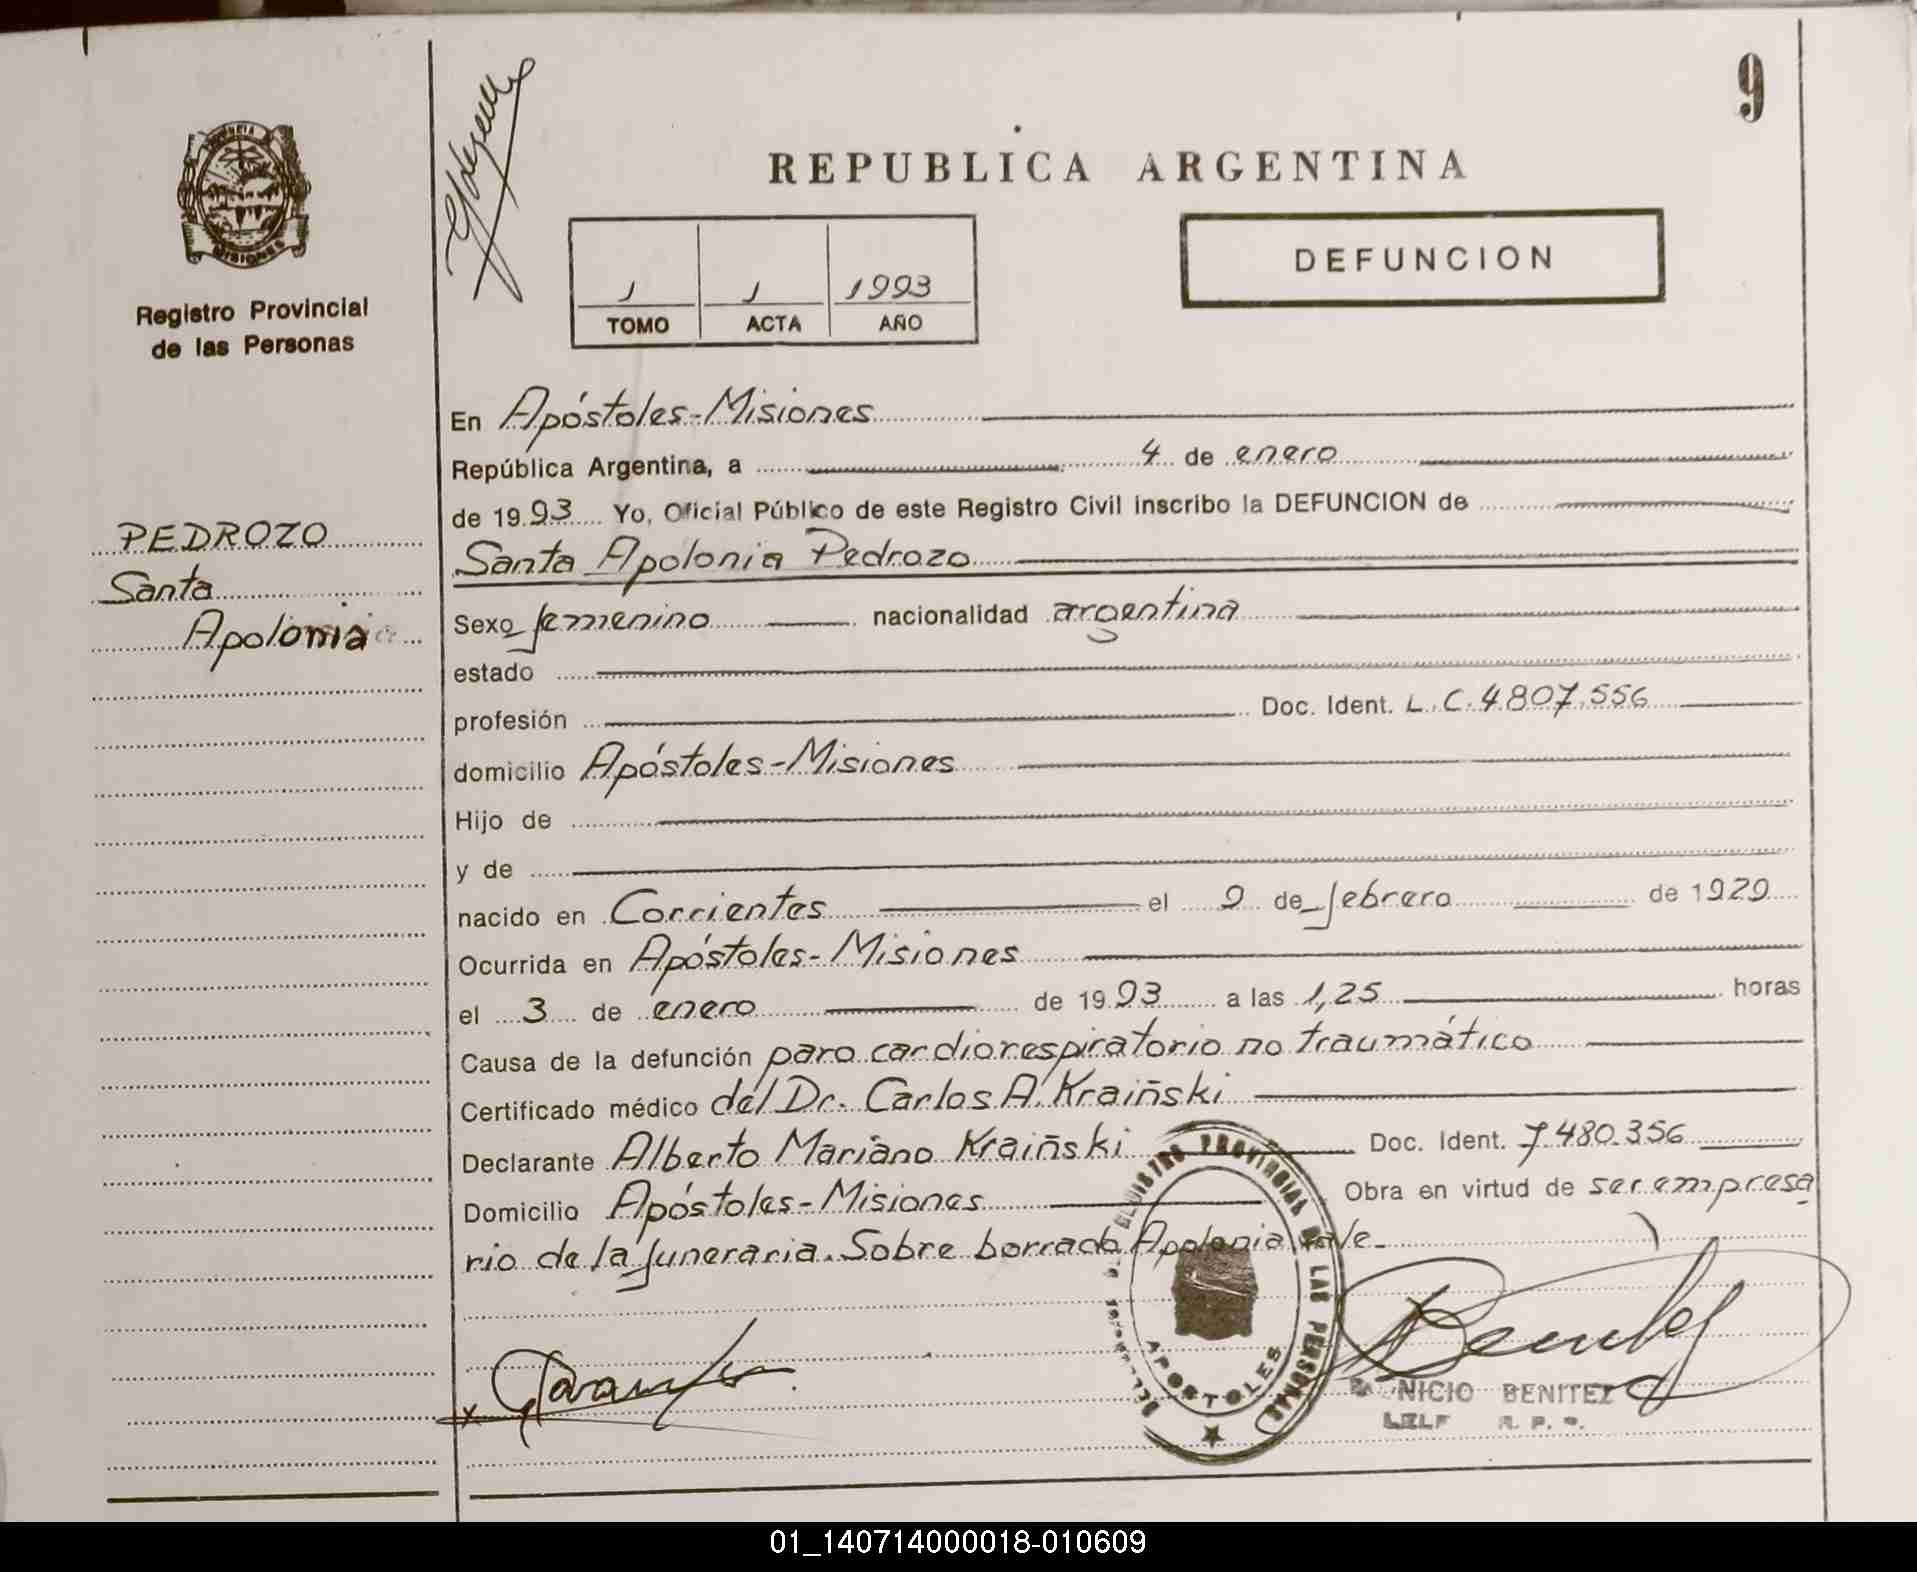 9
REPUBLICA ARGENTINA
PROVINCIA
MISIONES
Registro Provincial
de las Personas
1 1 1993
TOMO ACTA AÑO
DEFUNCION
PEDROZO
Santa
Apolonia
En Apóstoles-Misiones
República Argentina, a 4 de enero
de 1993 Yo, Oficial Público de este Registro Civil inscribo la DEFUNCION de
Santa Apolonia Pedrozo
Sexo femenino nacionalidad argentina
estado
profesión Doc. Ident. L.C. 4807.556
domicilio Apóstoles-Misiones
Hijo de
y de
nacido en Corrientes el 9 de febrero de 1929
Ocurrida en Apóstoles-Misiones
el 3 de enero de 1993 a las 1,25 horas
Causa de la defunción paro cardiorespiratorio no traumático
Certificado médico del Dr. Carlos A. Kraiñski
Declarante Alberto Mariano Kraiñski Doc. Ident. 7.480.356
Domicilio Apóstoles-Misiones Obra en virtud de ser empresa
rio de la funeraria. Sobre borrado Apolonia vale.
REGISTRO PROVINCIAL DE LAS PERSONAS
APOSTOLES
NICIO BENITEZ
R. P.
01_140714000018-010609